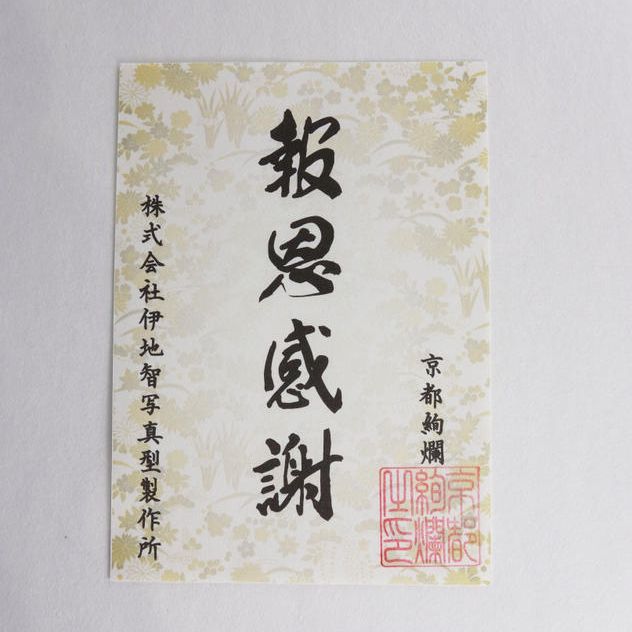 京都絢爛
京都
絢爛
之印
報恩感謝
株式会社伊地智写真型製作所